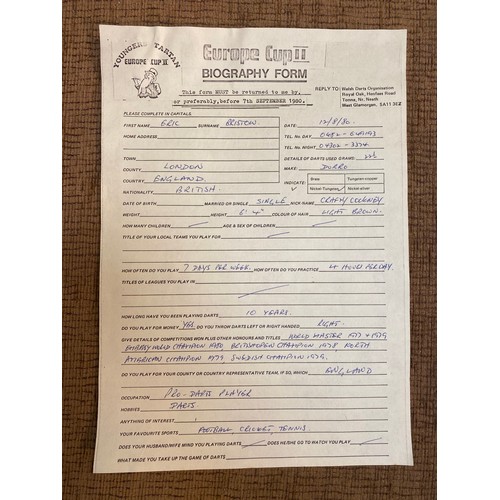 YOUNGERS TARTAN
EUROPE CUP II
Europe Cup II
BIOGRAPHY FORM
This form MUST be returned to me by,
or preferably, before 7th SEPTEMBER 1980.
REPLY TO: Welsh Darts Organisation
Royal Oak, Henfaes Road
Tonna, Nr. Neath
West Glamorgan, SA11 3EZ
PLEASE COMPLETE IN CAPITALS.
FIRST NAME ERIC SURNAME BRISTOW. DATE: 12/8/80.
HOME ADDRESS TEL. No. DAY
TEL. No. NIGHT
TOWN DETAILS OF DARTS USED GRAMS:
COUNTY LONDON MAKE:
COUNTRY ENGLAND. INDICATE: Brass Tungsten-copper
NATIONALITY: BRITISH. Nickel-Tungsten Nickel-silver
DATE OF BIRTH MARRIED OR SINGLE SINGLE NICK NAME CRAFTY COCKNEY
WEIGHT, HEIGHT 6' 4" COLOUR OF HAIR LIGHT BROWN.
HOW MANY CHILDREN AGE & SEX OF CHILDREN
TITLE OF YOUR LOCAL TEAMS YOU PLAY FOR
HOW OFTEN DO YOU PLAY 7 DAYS PER WEEK. HOW OFTEN DO YOU PRACTICE 4 HOURS PER DAY.
TITLES OF LEAGUES YOU PLAY IN
HOW LONG HAVE YOU BEEN PLAYING DARTS 10 YEARS.
DO YOU PLAY FOR MONEY YES. DO YOU THROW DARTS LEFT OR RIGHT HANDED RIGHT.
GIVE DETAILS OF COMPETITIONS WON PLUS OTHER HONOURS AND TITLES WORLD MASTER 1977 & 1979
EMBASSY WORLD CHAMPION 1980 BRITISH OPEN CHAMPION 1978 NORTH
AMERICAN CHAMPION 1979 SWEDISH CHAMPION 1979.
DO YOU PLAY FOR YOUR COUNTY OR COUNTRY REPRESENTATIVE TEAM, IF SO, WHICH ENGLAND
OCCUPATION PRO-DARTS PLAYER
HOBBIES DARTS
ANYTHING OF INTEREST
YOUR FAVOURITE SPORTS FOOTBALL CRICKET TENNIS.
DOES YOUR HUSBAND/WIFE MIND YOU PLAYING DARTS DOES HE/SHE GO TO WATCH YOU PLAY
WHAT MADE YOU TAKE UP THE GAME OF DARTS